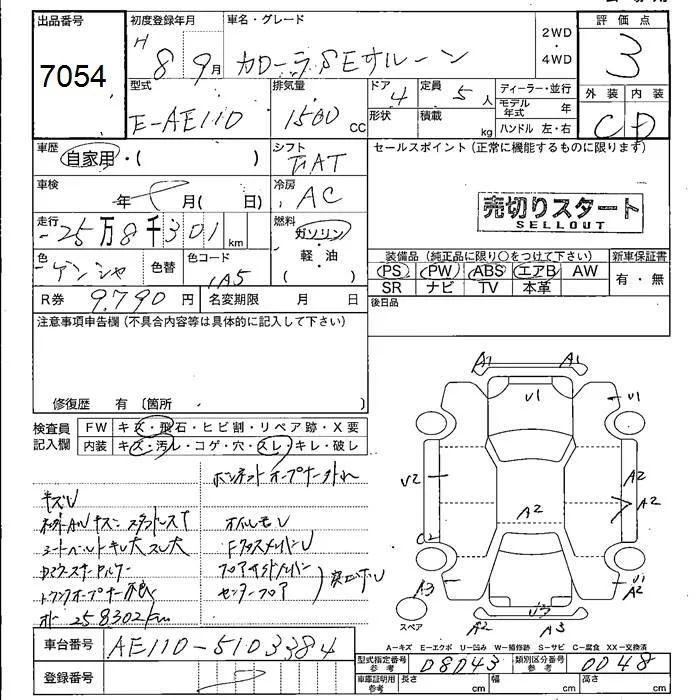 出品番号
7054
初度登録年月
H 8 9月
車名・グレード
カローラ SEサルーン
2WD
・
4WD
評価点
3
外装 内装
C D
型式
E-AE110
排気量
1500 cc
ドア 4
形状
定員 5人
積載 kg
ディーラー・並行
モデル年式 年
ハンドル 左・右
車歴
自家用・( )
シフト
FAT
セールスポイント (正常に機能するものに限ります)
売切りスタート
SELLOUT
車検
年 月( 日)
冷房
AC
走行
25万8千301 km
燃料
ガソリン
・
軽・油
( )
色
ゲンシャ
色替
色コード
1A5
装備品 (純正品に限り○をつけて下さい)
PS PW ABS エアB AW
SR ナビ TV 本革
新車保証書
有・無
R券 9,790 円
名変期限 月 日
後日品
注意事項申告欄 (不具合内容等は具体的に記入して下さい)
修復歴 有 〔箇所 〕
検査員
記入欄
FW キズ・飛石・ヒビ割・リペア跡・X要
内装 キズ・汚レ・コゲ・穴・スレ・キレ・破レ
ボンネットオープナー外れ
キズU
オイルモレ
シートベルトキレ大スレ大
トランクオープナー不良
フロアサイドメンバー
センターフロア
オドー 258302km
A1 A1
U1 U1
U2 A2
A2 A2
A3 U1
A2
A2 A3
スペア
A-キズ E-エクボ U-凹み W-補修跡 S-サビ C-腐食 XX-交換済
車台番号 AE110-5103384
登録番号
型式指定番号 参考 08043
類別区分番号 参考 0048
車庫証明用 参考 長さ cm 幅 cm 高さ cm